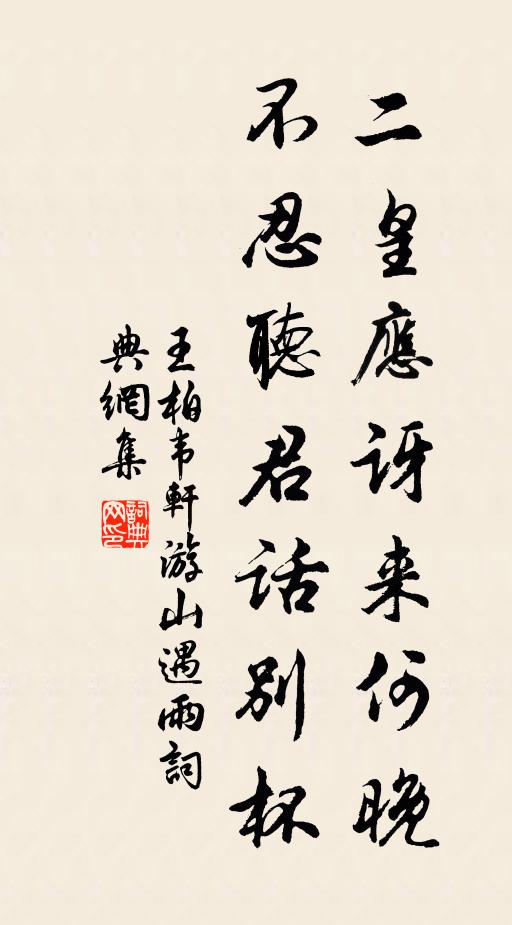 二皇應訝来何晚
不忍聽君話別杯
王柏韦軒游山遇雨詞
典網集
詞典網印